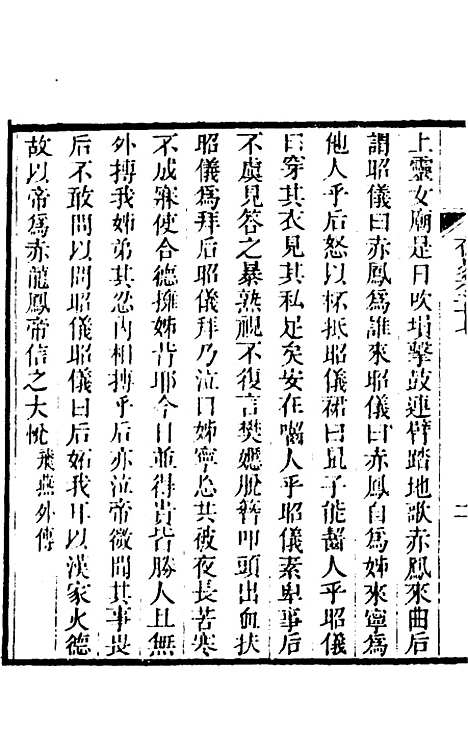 上靈女廟是日吹塤擊鼓連臂踏地歌赤鳳來曲后
謂昭儀曰赤鳳爲誰來昭儀曰赤鳳自爲姊來寧爲
他人乎后怒以杯抵昭儀裙曰鼠子能齧人乎昭儀
曰穿其衣見其私足矣安在嚙人乎昭儀素卑事后
不虞見答之暴熟視不復言樊嬺脫簪叩頭出血扶
昭儀爲拜后昭儀拜乃泣曰姊寧忘共被夜長苦寒
不成寐使合德擁姊背耶今日並得貴皆勝人且無
外搏我姊弟其忍內相搏乎后亦泣帝微聞其事畏
后不敢問以問昭儀昭儀曰后妬我耳以漢家火德
故以帝爲赤龍鳳帝信之大悅飛燕外傳